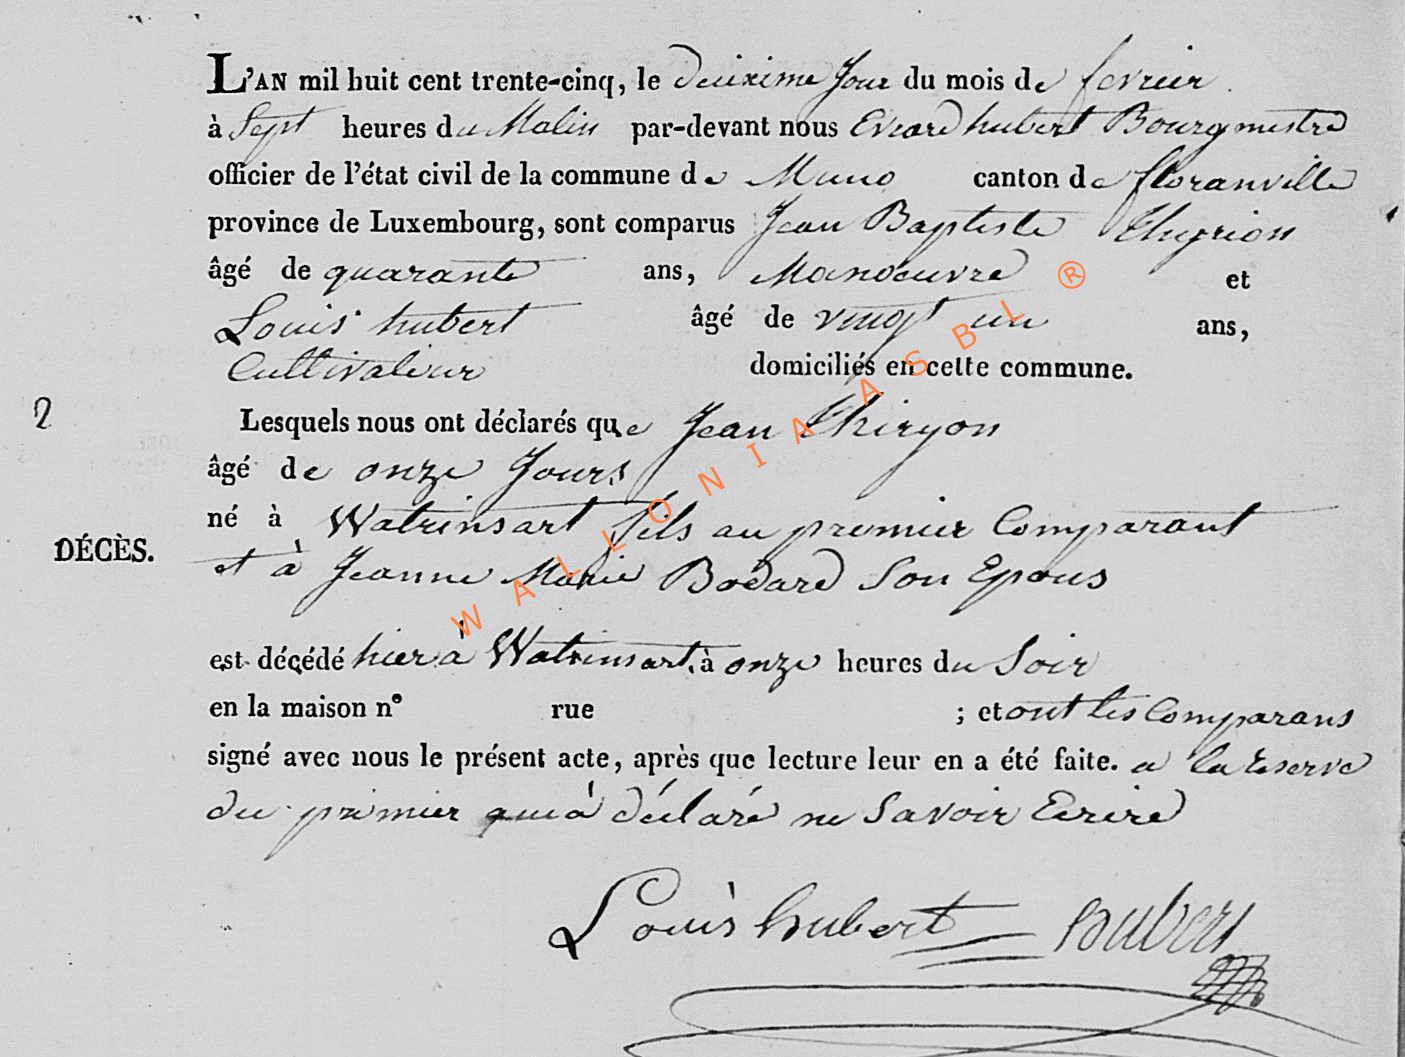 L'AN mil huit cent trente-cinq, le deuixime Jour du mois de fevrier
à Sept heures du Matin par-devant nous Evrard hubert Bourgmestre
officier de l'état civil de la commune de Muno canton de floranville
province de Luxembourg, sont comparus Jean Baptiste Thyrion
âgé de quarante ans, Manoeuvre et
Louis hubert âgé de vingt un ans,
Cultivateur domiciliés en cette commune.
2
Lesquels nous ont déclarés que Jean Thiryon
âgé de onze Jours
né à Watrinsart fils au premier Comparant
DÉCÈS.
et à Jeanne Marie Bodard Son Epous
est décédé hier à Watrinsart, à onze heures du Soir
en la maison n° rue ; et ont les Comparans
signé avec nous le présent acte, après que lecture leur en a été faite. a la reserve
du premier qui à déclaré ne Savoir Ecrire
Louis hubert hubert
WALLONIA ASBL ®